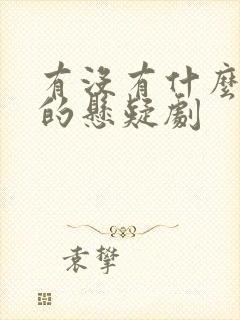 有没有什麼
的懸疑劇
袁攀